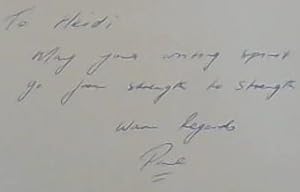 To Heidi
May your writing spirit
go from strength to strength
Warm Regards
Paul